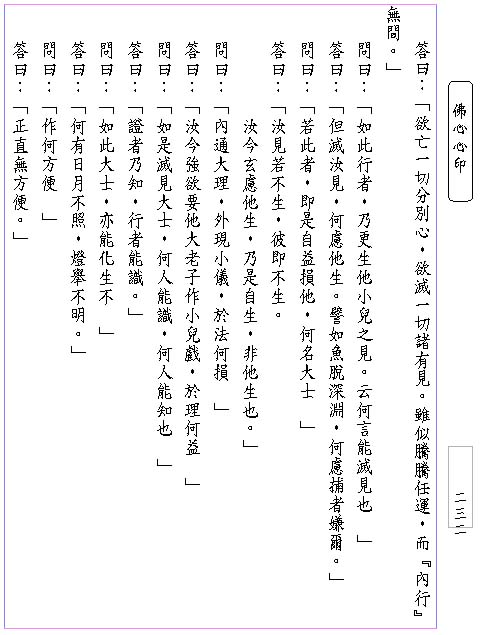 佛心心印
二三二
答曰：「欲亡一切分別心，欲滅一切諸有見。雖似騰騰任運，而『內行』
無間。」
問曰：「如此行者，乃更生他小兒之見。云何言能滅見也　」
答曰：「但滅汝見，何慮他生。譬如魚脫深淵，何慮捕者嫌爾。」
問曰：「若此者，即是自益損他，何名大士　」
答曰：「汝見若不生，彼即不生。
汝今玄慮他生，乃是自生，非他生也。」
問曰：「內通大理，外現小儀，於法何損　」
答曰：「汝今強欲要他大老子作小兒戲，於理何益　」
問曰：「如是滅見大士，何人能識，何人能知也　」
答曰：「證者乃知，行者能識。」
問曰：「如此大士，亦能化生不　」
答曰：「何有日月不照，燈舉不明。」
問曰：「作何方便　」
答曰：「正直無方便。」